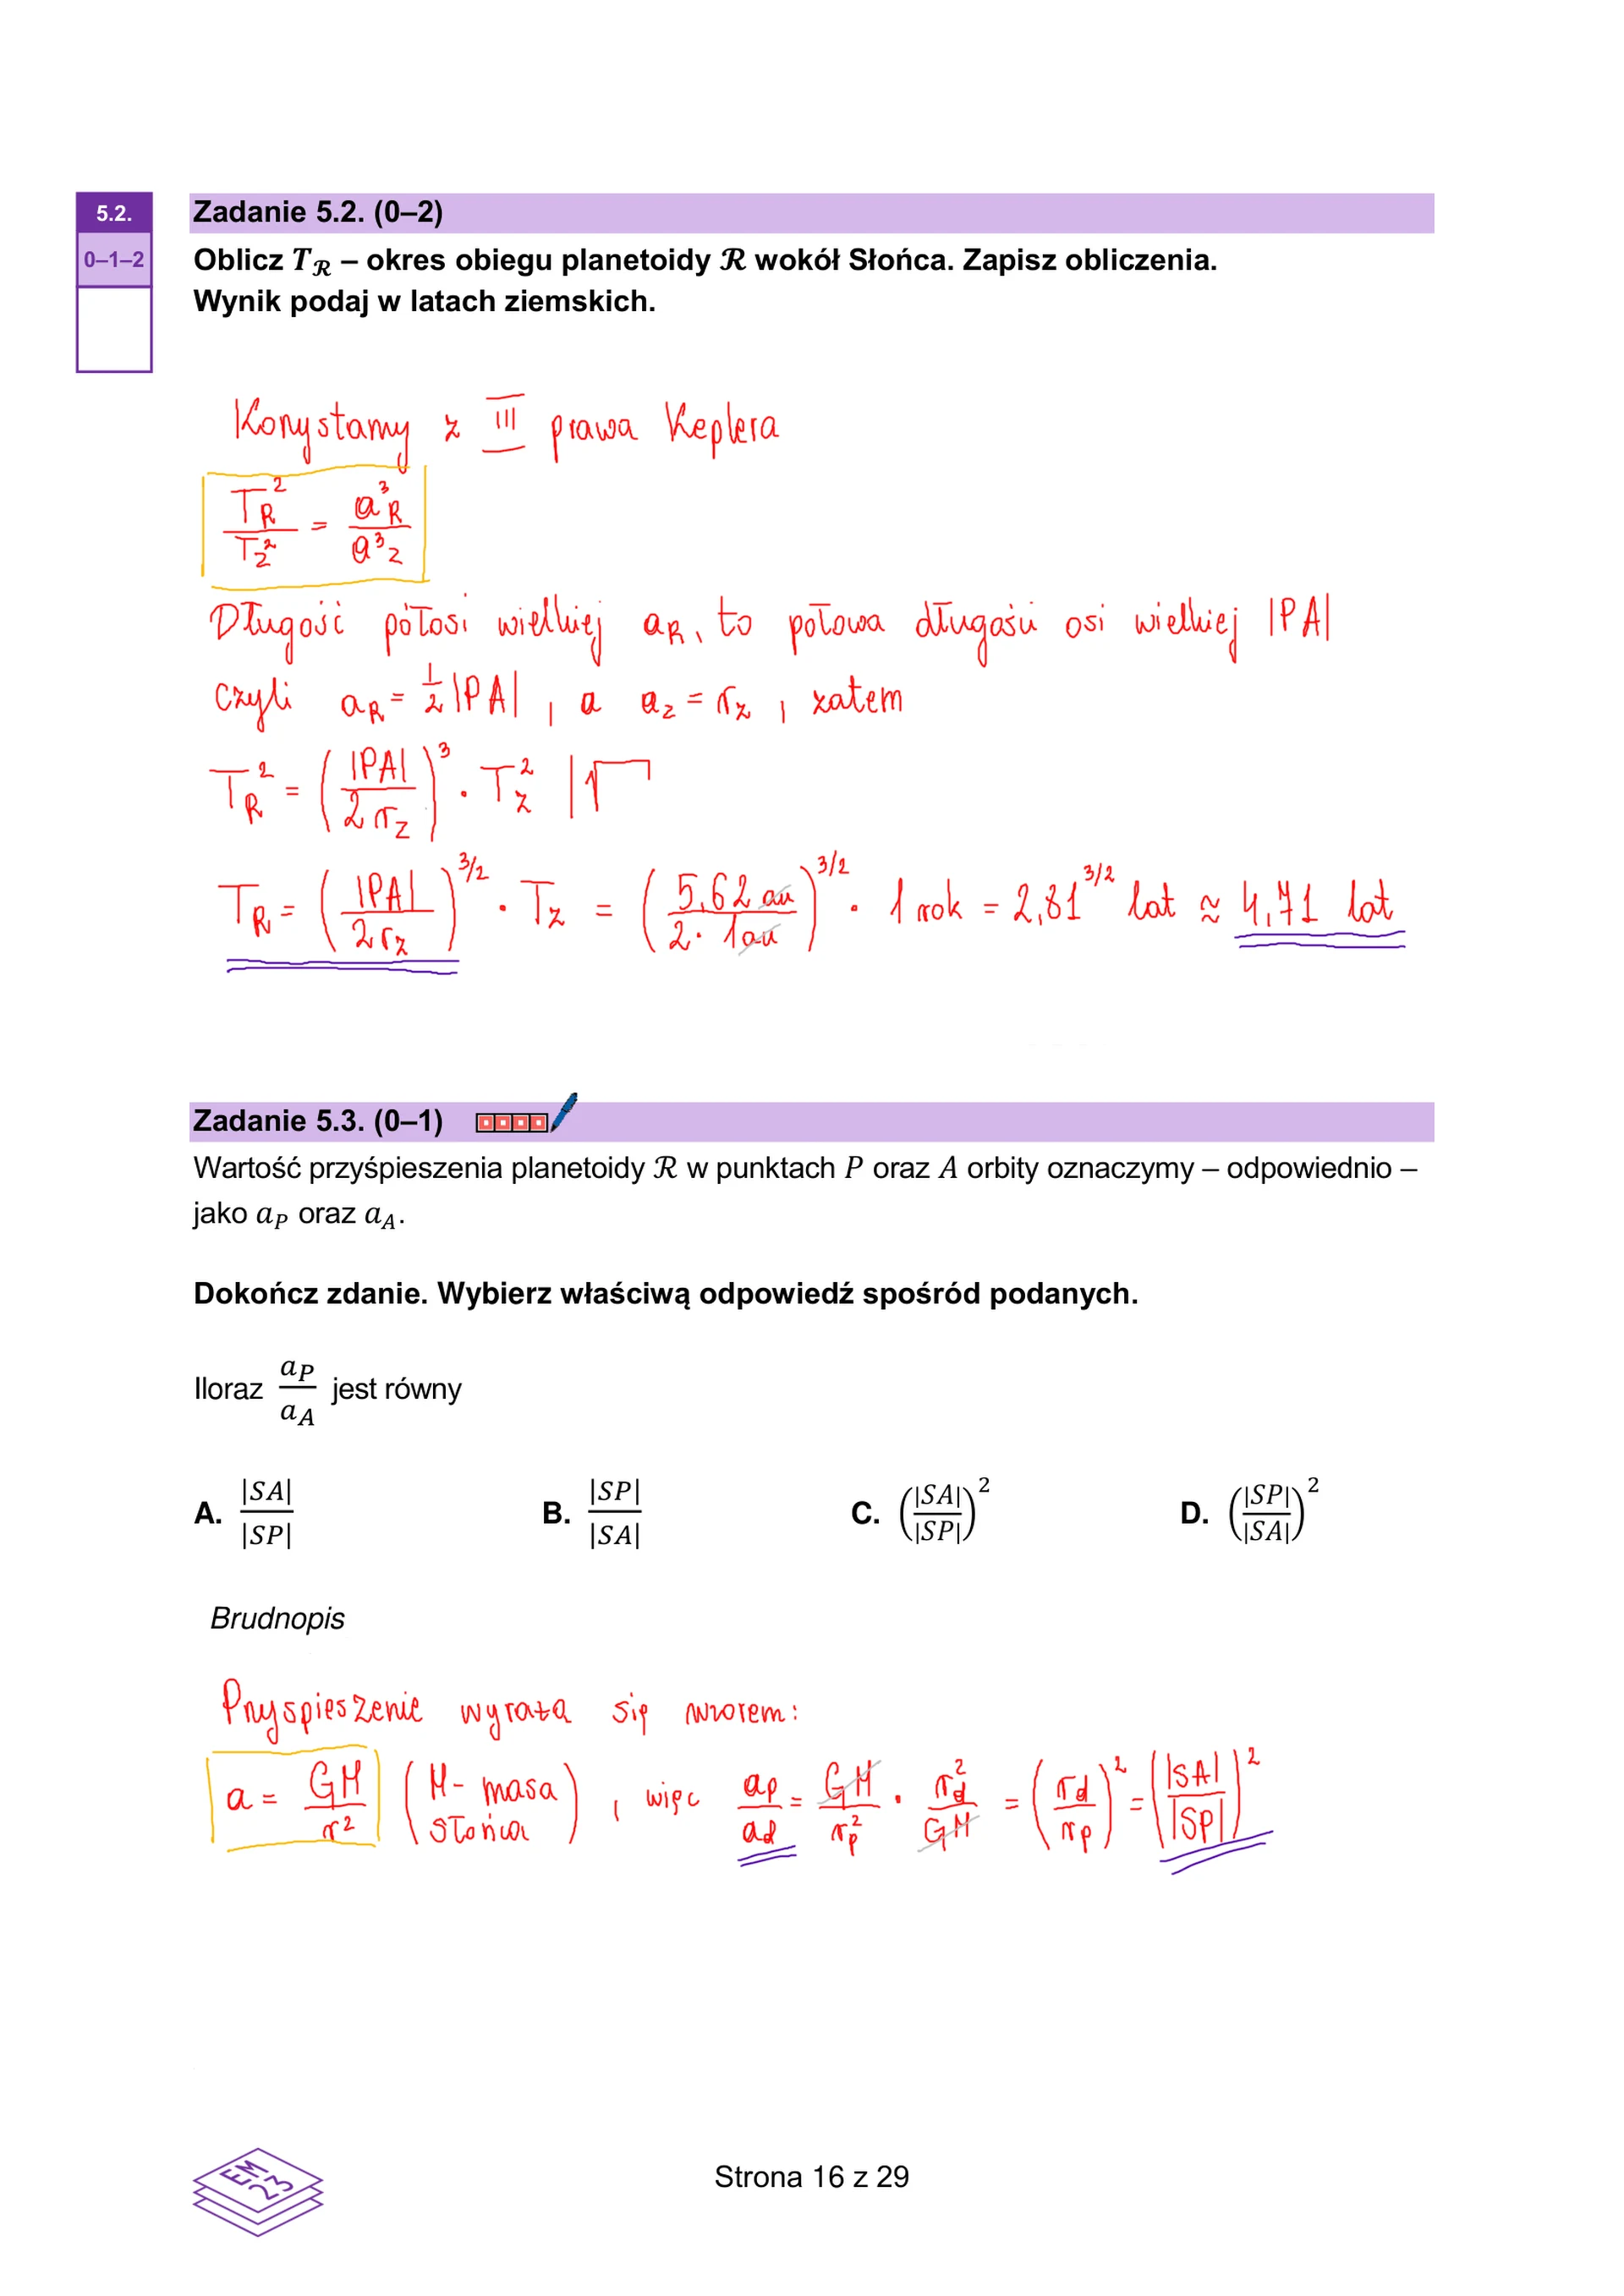 5.2.
0–1–2
Zadanie 5.2. (0–2)
Oblicz T_ℛ – okres obiegu planetoidy ℛ wokół Słońca. Zapisz obliczenia.
Wynik podaj w latach ziemskich.
Korzystamy z III prawa Keplera
T_R^2 / T_Z^2 = a^3_R / a^3_Z
Długość półosi wielkiej a_R, to połowa długości osi wielkiej |PA|
czyli a_R = 1/2 |PA| , a a_Z = r_Z , zatem
T_R^2 = (|PA| / 2 r_Z)^3 · T_Z^2 |√
T_R = (|PA| / 2 r_Z)^3/2 · T_Z = (5,62 au / 2 · 1au)^3/2 · 1 rok = 2,81^3/2 lat ≈ 4,71 lat
Zadanie 5.3. (0–1)
Wartość przyśpieszenia planetoidy ℛ w punktach P oraz A orbity oznaczymy – odpowiednio –
jako a_P oraz a_A.
Dokończ zdanie. Wybierz właściwą odpowiedź spośród podanych.
Iloraz a_P / a_A jest równy
A. |SA| / |SP| B. |SP| / |SA| C. (|SA| / |SP|)^2 D. (|SP| / |SA|)^2
Brudnopis
Przyspieszenie wyraża się wzorem:
a = GM / r^2 (M - masa Słońca) , więc a_P / a_A = GM / r_P^2 · r_A^2 / GM = (r_A / r_P)^2 = (|SA| / |SP|)^2
EM
23
Strona 16 z 29